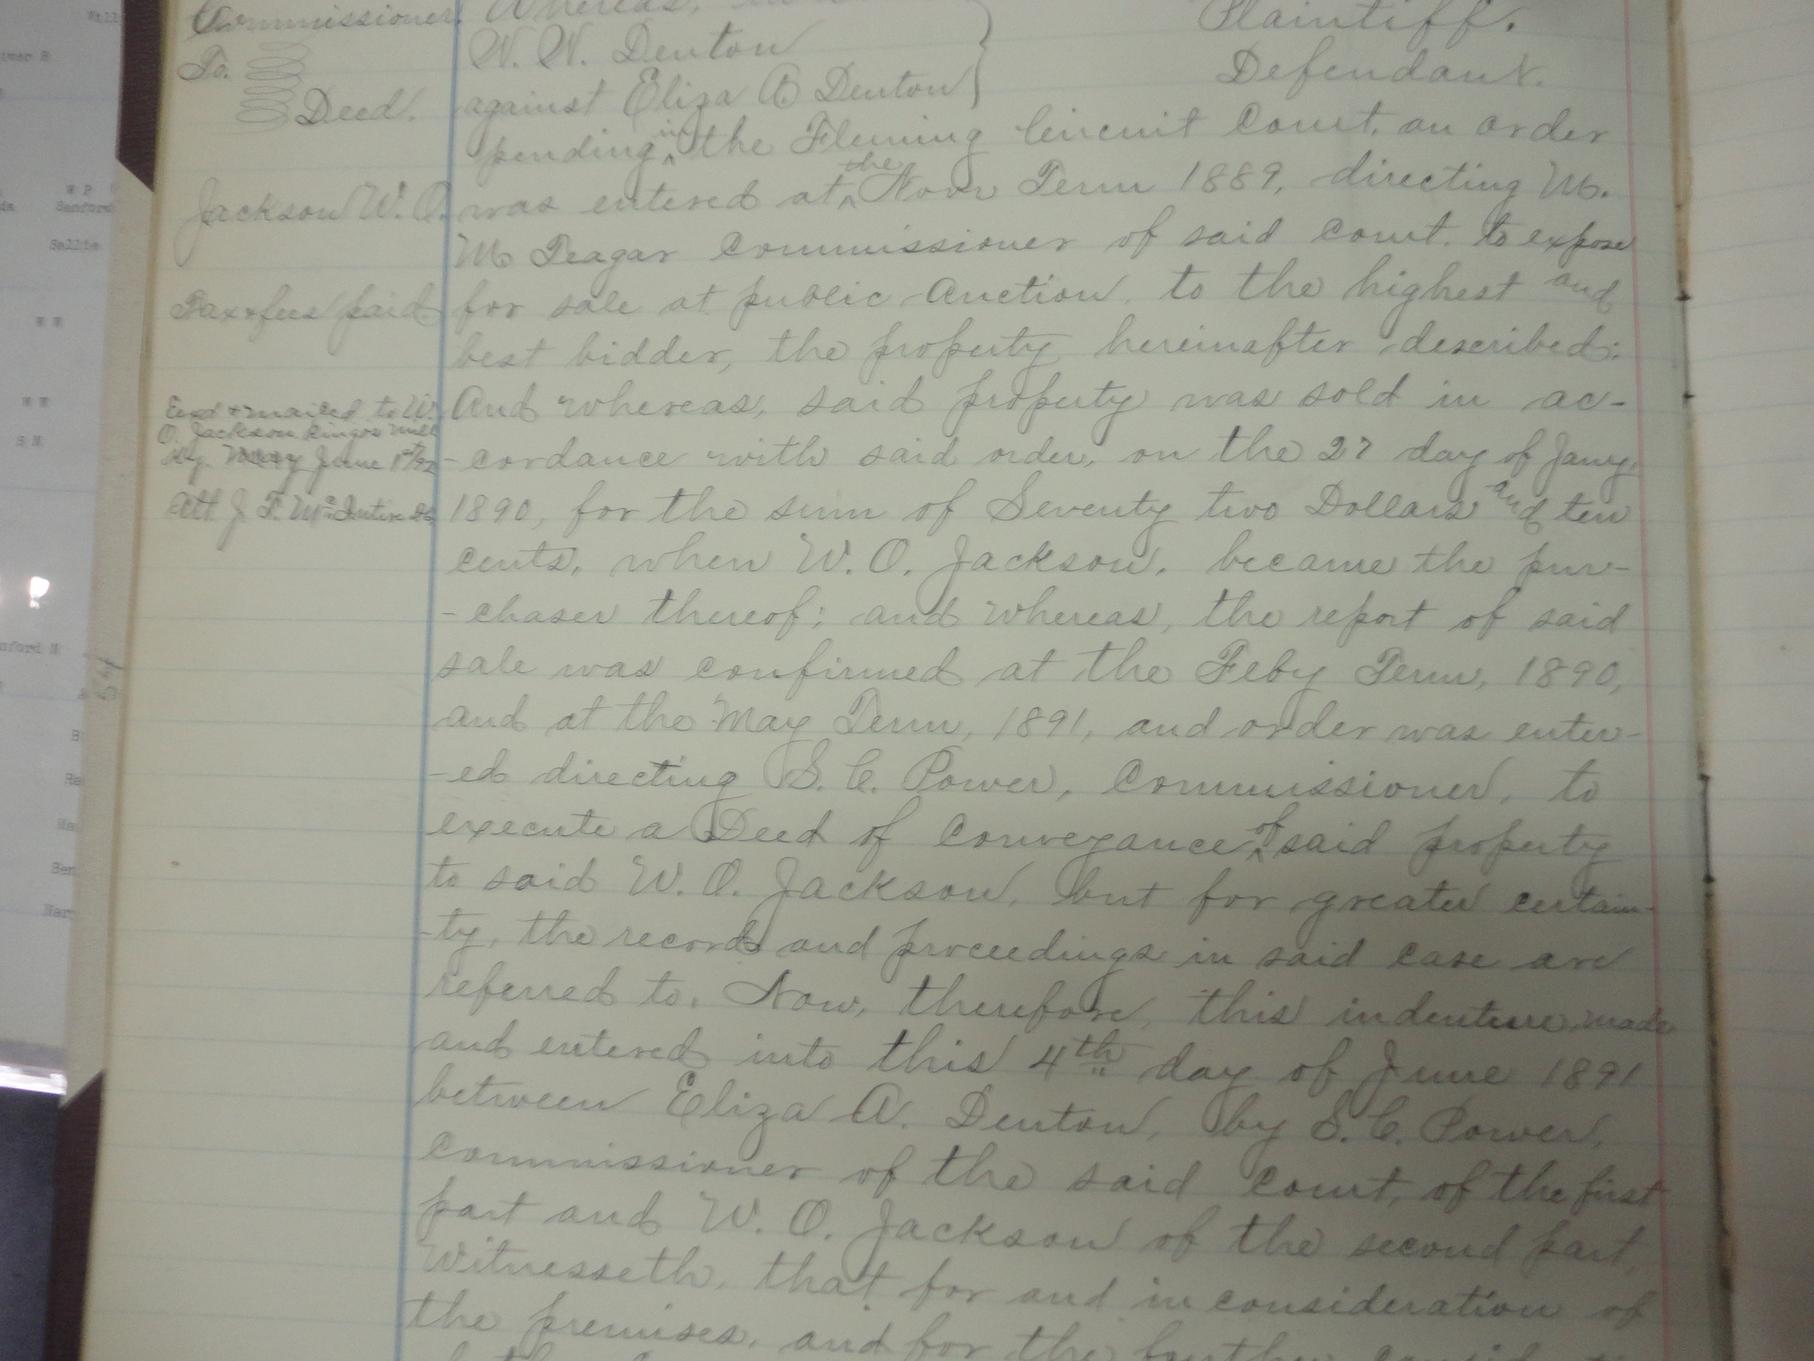 Commissioner,
To.
Deed.
Jackson W. O.
Tax & fees paid
End & mailed to W.
O. Jackson Ringos Mill
Ky. May June 1st/92
att J. T. McIntire DC
Whereas,
Plaintiff.
N. N. Denton
Defendant.
against Eliza A Denton
pending in the Fleming Circuit Court, an order
was entered at the Novr Term 1889, directing M.
M Teagar Commissioner of said Court. to expose
for sale at public Auction, to the highest and
best bidder, the property hereinafter described:
And whereas, said property was sold in ac-
-cordance with said order, on the 27 day of Jany.
1890, for the sum of Seventy two Dollars and ten
cents, when W. O. Jackson, became the pur-
-chaser thereof; and whereas, the report of said
sale was confirmed at the Feby Term, 1890,
and at the May Term, 1891, and order was enter-
-ed directing S. C. Power, Commissioner, to
execute a Deed of Conveyance of said property
to said W. O. Jackson, but for greater certain-
-ty, the records and proceedings in said case are
referred to. Now, therefore, this indenture, made
and entered into this 4th day of June 1891
between Eliza A. Denton, by S. C. Power,
commissioner of the said Court, of the first
part and W. O. Jackson of the second part,
Witnesseth, that for and in consideration of
the premises, and for the further